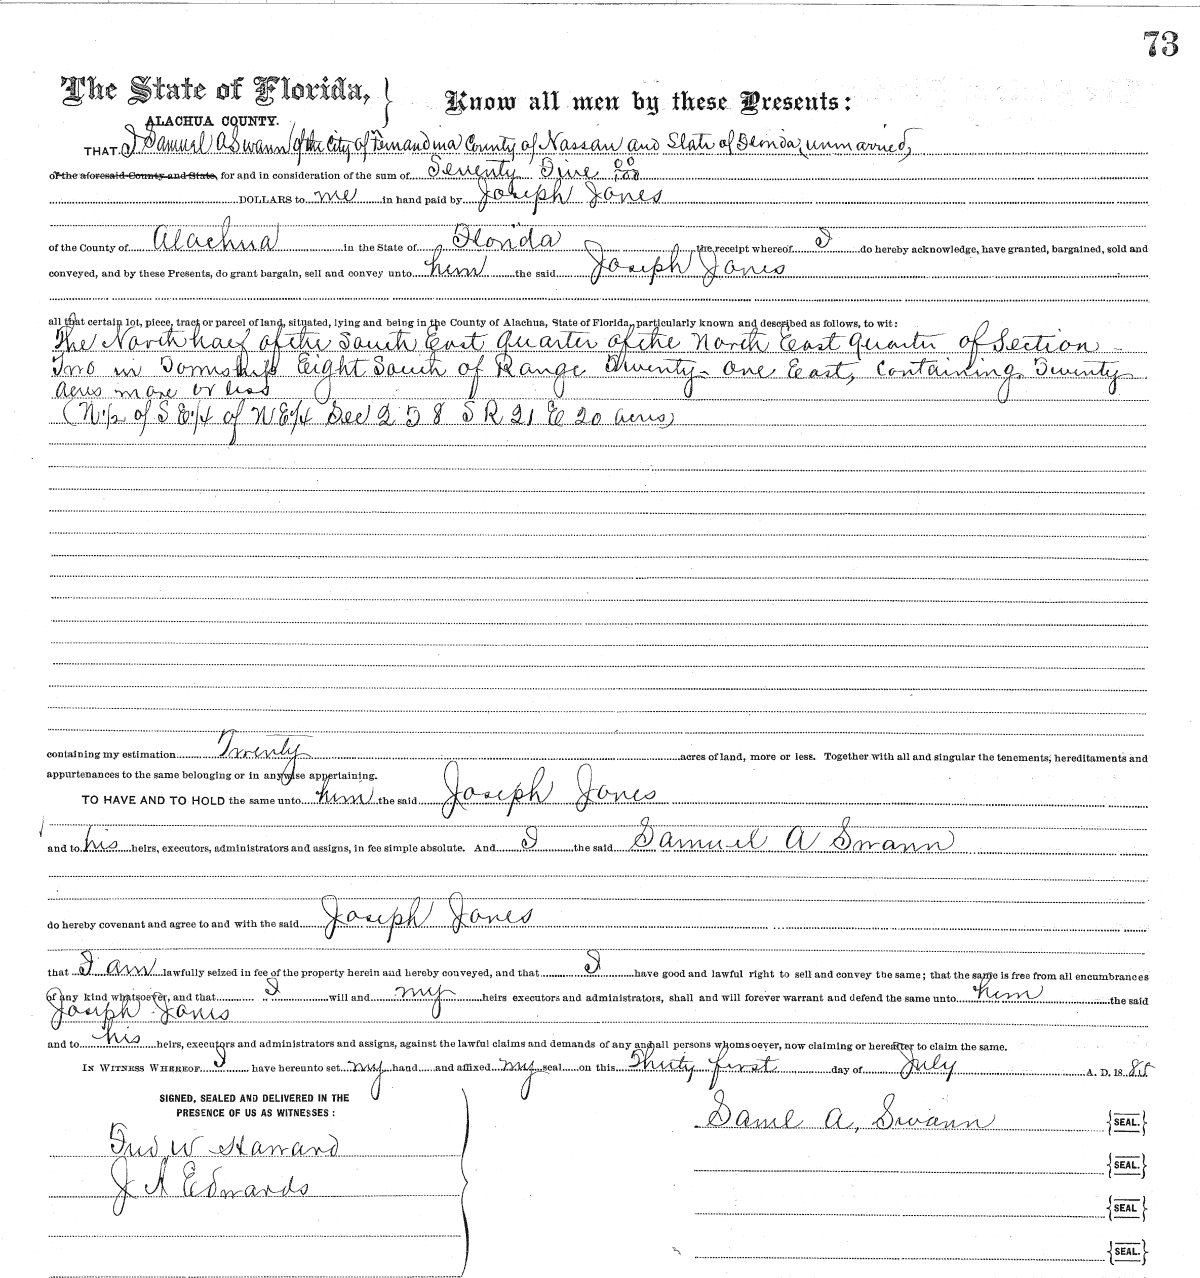 73
The State of Florida,
Know all men by these Presents:
ALACHUA COUNTY.
THAT I Samuel A Swann of the City of Fernandina County of Nassau and State of Florida, unmarried,
of the aforesaid County and State, for and in consideration of the sum of Seventy Five 00/100
DOLLARS to me in hand paid by Joseph Jones
of the County of Alachua in the State of Florida the receipt whereof I do hereby acknowledge, have granted, bargained, sold and
conveyed, and by these Presents, do grant bargain, sell and convey unto him the said Joseph Jones
all that certain lot, piece, tract or parcel of land, situated, lying and being in the County of Alachua, State of Florida, particularly known and described as follows, to wit:
The North half of the South East Quarter of the North East Quarter of Section
Two in Township Eight South of Range Twenty-One East, Containing Twenty
acres more or less
(N 1/2 of S E 1/4 of N E 1/4 Sec 2 8 S R 21 E 20 acres)
containing my estimation Twenty acres of land, more or less. Together with all and singular the tenements, hereditaments and
appurtenances to the same belonging or in anywise appertaining.
TO HAVE AND TO HOLD the same unto him the said Joseph Jones
and to his heirs, executors, administrators and assigns, in fee simple absolute. And I the said Samuel A Swann
do hereby covenant and agree to and with the said Joseph Jones
that I am lawfully seized in fee of the property herein and hereby conveyed, and that I have good and lawful right to sell and convey the same; that the same is free from all encumbrances
of any kind whatsoever, and that I will and my heirs executors and administrators, shall and will forever warrant and defend the same unto him the said
Joseph Jones
and to his heirs, executors and administrators and assigns, against the lawful claims and demands of any and all persons whomsoever, now claiming or hereafter to claim the same.
IN WITNESS WHEREOF I have hereunto set my hand and affixed my seal on this Thirty first day of July A. D. 18 85
SIGNED, SEALED AND DELIVERED IN THE
PRESENCE OF US AS WITNESSES:
Saml A, Swann {SEAL.}
W
J A Edwards
{SEAL.}
{SEAL
{SEAL.}